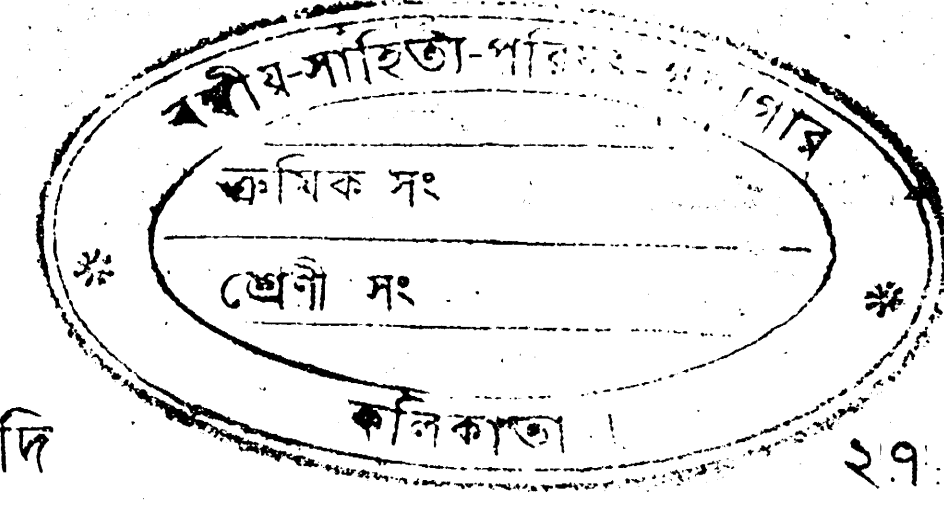 বঙ্গীয়-সাহিত্য-পরিষৎ-গ্রন্থাগার
ক্রমিক সং
শ্রেণী সং
কলিকাতা
দি ২৭